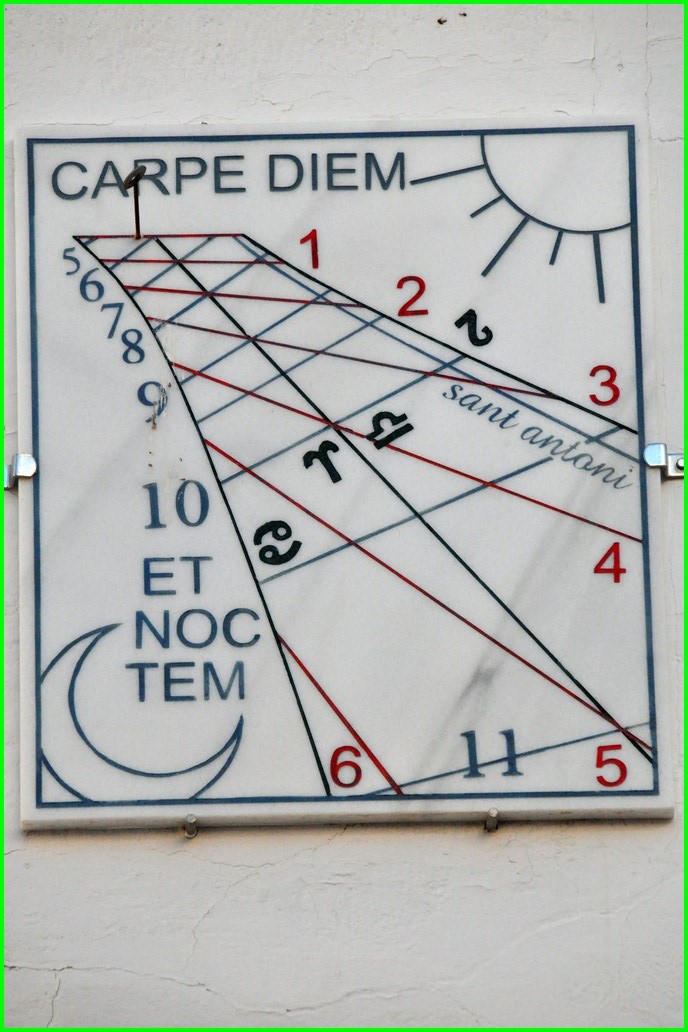 CARPE DIEM
1
2
3
4
5
6
5
6
7
8
9
10
11
♎
♈
♋
sant antoni
ET
NOC
TEM